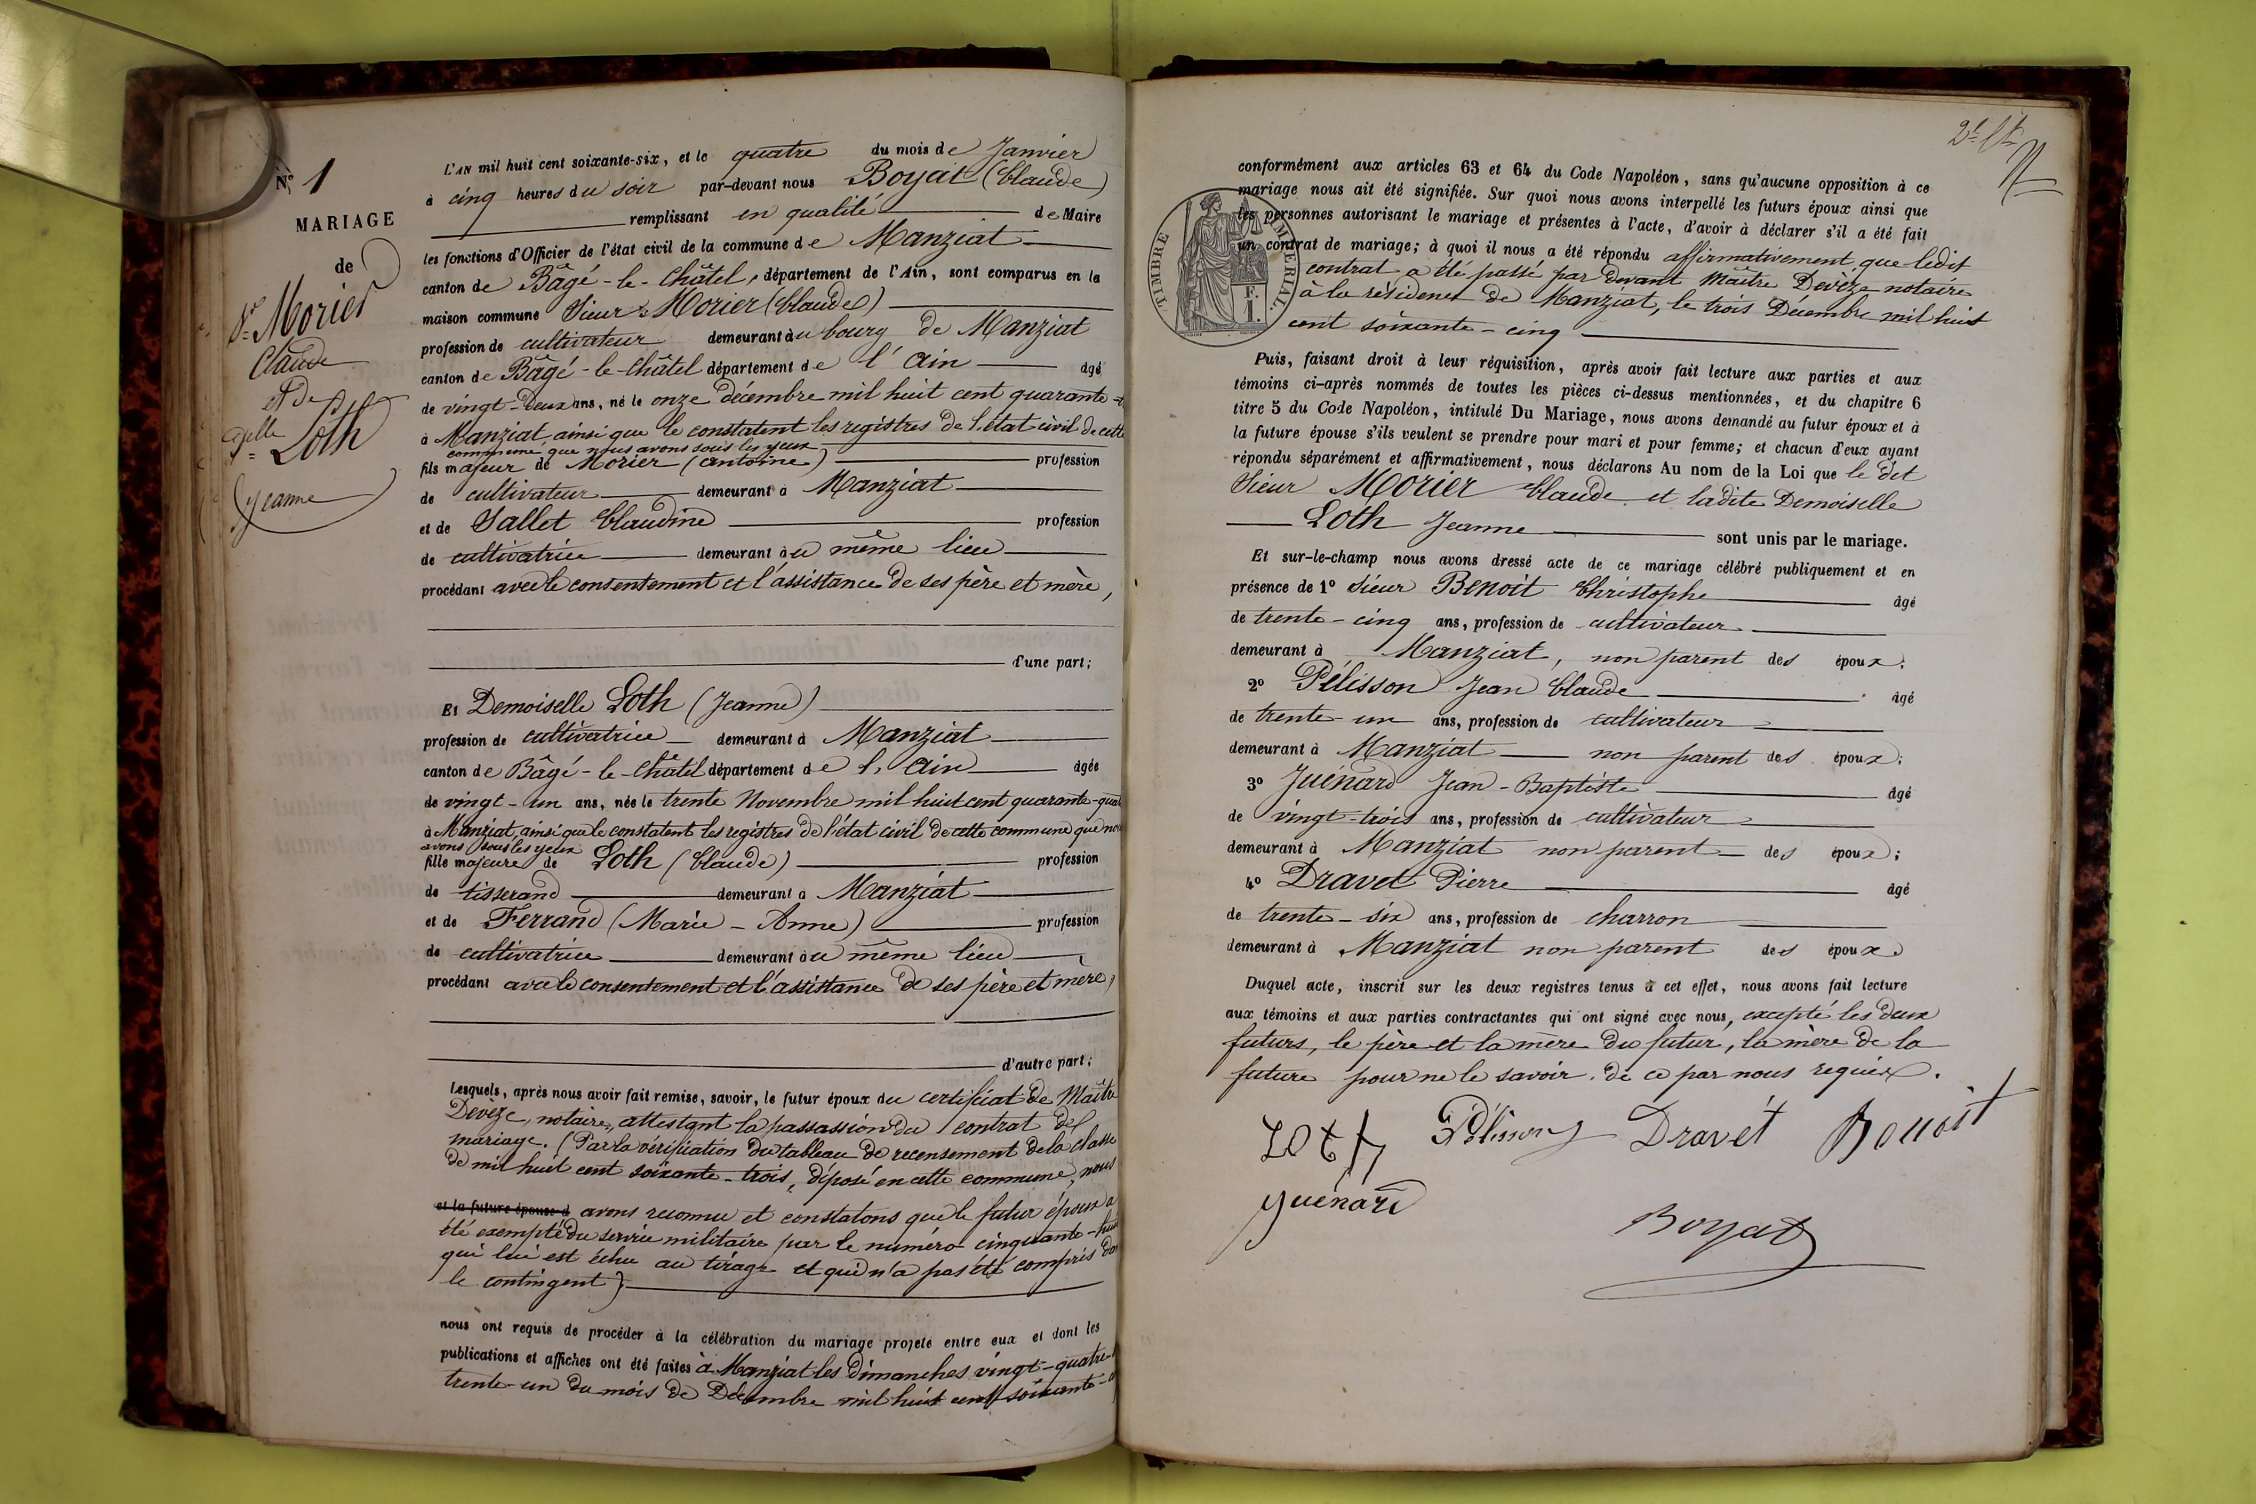 N.° 1
MARIAGE
de
Sr Morier
Claude
et de
Delle Loth
(Jeanne)
L'AN mil huit cent soixante-six, et le quatre du mois de Janvier
à cinq heures du soir par-devant nous Boyat (Claude)
remplissant en qualité de Maire
les fonctions d'Officier de l'état civil de la commune de Manziat
canton de Bâgé-le-Châtel, département de l'Ain, sont comparus en la
maison commune Sieur Morier (Claude)
profession de cultivateur demeurant au bourg de Manziat
canton de Bâgé-le-Châtel département de l'Ain âgé
de vingt-deux ans, né le onze décembre mil huit cent quarante-t
à Manziat, ainsi que le constatent les registres de l'état civil de cette
commune que nous avons sous les yeux
fils majeur de Morier (Antoine) profession
de cultivateur demeurant à Manziat
et de Sallet Claudine profession
de cultivatrice demeurant au même lieu
procédant avec le consentement et l'assistance de ses père et mère,
d'une part;
Et Demoiselle Loth (Jeanne)
profession de cultivatrice demeurant à Manziat
canton de Bâgé-le-Châtel département de l'Ain âgée
de vingt-un ans, née le trente Novembre mil huit cent quarante-quat
à Manziat, ainsi que le constatent les registres de l'état civil de cette commune que nou
avons sous les yeux
fille majeure de Loth (Claude) profession
de tisserand demeurant à Manziat
et de Ferrand (Marie-Anne) profession
de cultivatrice demeurant au même lieu
procédant avec le consentement et l'assistance de ses père et mère,
d'autre part;
Lesquels, après nous avoir fait remise, savoir, le futur époux du certificat de Maître
Devèze, notaire, attestant la passassion du contrat de
mariage. (Par la vérification du tableau de recensement de la classe
de mil huit cent soixante-trois, déposé en cette commune, nous
et la future épouse d avons reconnu et constatons que le futur époux a
été exempté du service militaire par le numéro cinquante-huit
qui lui est échu au tirage et qui n'a pas été compris dan
le contingent)
nous ont requis de procéder à la célébration du mariage projeté entre eux et dont les
publications et affiches ont été faites à Manziat les Dimanches vingt-quatre
trente-un du mois de Décembre mil huit cent soixante-c
conformément aux articles 63 et 64 du Code Napoléon, sans qu'aucune opposition à ce
mariage nous ait été signifiée. Sur quoi nous avons interpellé les futurs époux ainsi que
les personnes autorisant le mariage et présentes à l'acte, d'avoir à déclarer s'il a été fait
un contrat de mariage; à quoi il nous a été répondu affirmativement que ledit
contrat a été passé par devant Maître Devèze notaire
à la résidence de Manziat, le trois Décembre mil huit
cent soixante-cinq
TIMBRE IMPÉRIAL.
1 F.
Puis, faisant droit à leur réquisition, après avoir fait lecture aux parties et aux
témoins ci-après nommés de toutes les pièces ci-dessus mentionnées, et du chapitre 6
titre 5 du Code Napoléon, intitulé Du Mariage, nous avons demandé au futur époux et à
la future épouse s'ils veulent se prendre pour mari et pour femme; et chacun d'eux ayant
répondu séparément et affirmativement, nous déclarons Au nom de la Loi que le dit
Sieur Morier Claude et ladite Demoiselle
Loth Jeanne sont unis par le mariage.
Et sur-le-champ nous avons dressé acte de ce mariage célébré publiquement et en
présence de 1° Sieur Benoit Christophe âgé
de trente-cinq ans, profession de cultivateur
demeurant à Manziat, non parent des époux;
2° Pélisson Jean Claude âgé
de trente-un ans, profession de cultivateur
demeurant à Manziat non parent des époux;
3° Juénard Jean-Baptiste âgé
de vingt-trois ans, profession de cultivateur
demeurant à Manziat non parent des époux;
4° Dravet Pierre âgé
de trente-six ans, profession de charron
demeurant à Manziat non parent des époux
Duquel acte, inscrit sur les deux registres tenus à cet effet, nous avons fait lecture
aux témoins et aux parties contractantes qui ont signé avec nous, excepté les deux
futurs, le père et la mère du futur, la mère de la
future pour ne le savoir de ce par nous requis.
Loth Pélisson Dravet Benoit
Juénard
Boyat